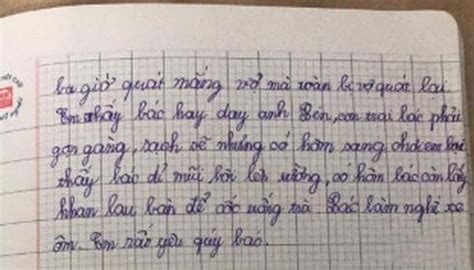 ba giờ quát mắng vợ mà toàn bị vợ quát lại.
Em thấy bác hay dạy anh Bên, con trai bác phải
gọn gàng, sạch sẽ nhưng có hôm sang chơi em
thấy bác dỉ mũi bôi lên tường, có hôm bác còn lấy
khăn lau bàn để cốc uống trà. Bác làm nghề xe
ôm. Em rất yêu quý bác.